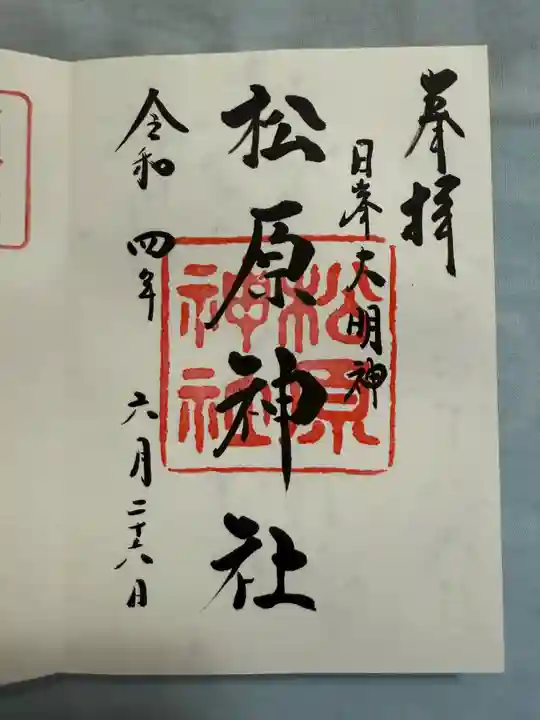 奉拝
日峯大明神
松原神社
松原神社
令和四年六月二十六日